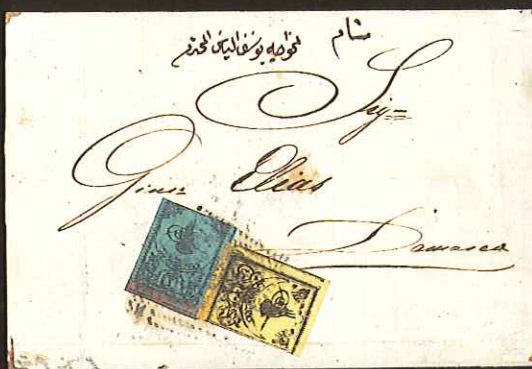 شام
لخواجه يوسف الياس المحترم
Sig=
Gius= Elias
Damasco